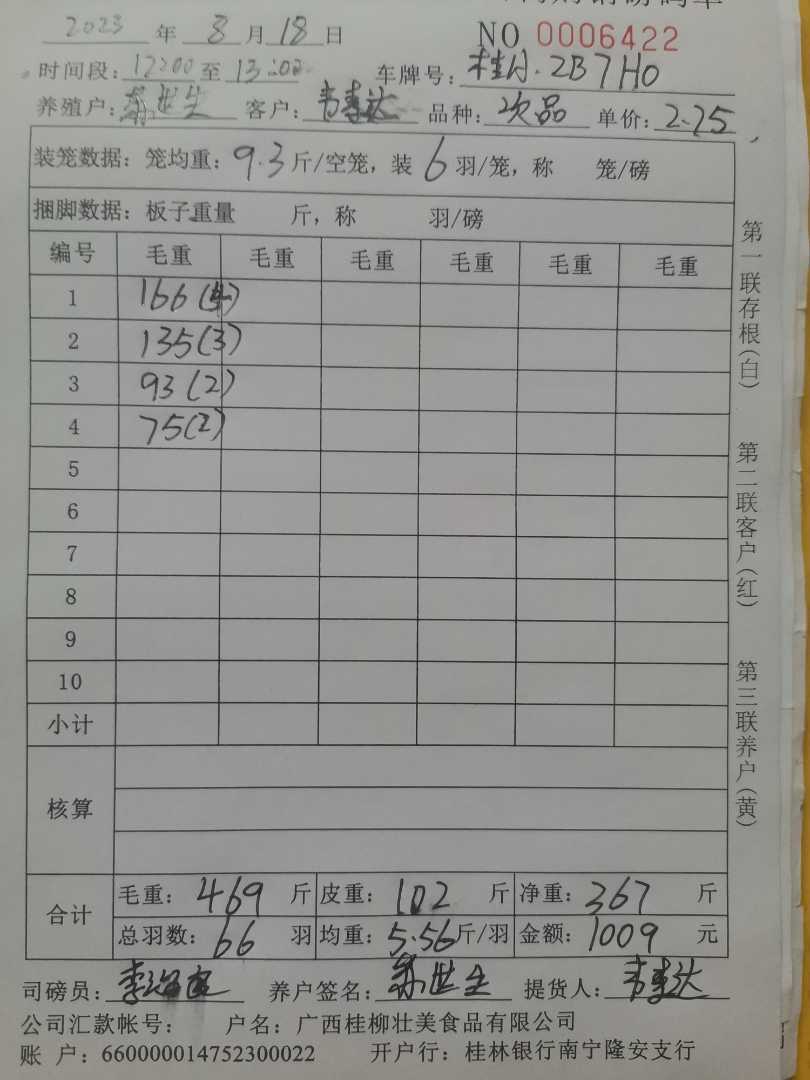 2023 年 8 月 18 日 NO 0006422
时间段: 12:00 至 13:00 车牌号: 桂A·2B7H0
养殖户: 苏世生 客户: 韦寿达 品种: 次品 单价: 2.75
装笼数据: 笼均重: 9.3 斤/空笼, 装 6 羽/笼, 称 笼/磅
捆脚数据: 板子重量 斤, 称 羽/磅
编号 毛重 毛重 毛重 毛重 毛重 毛重
1 166(4)
2 135(3)
3 93(2)
4 75(2)
5
6
7
8
9
10
小计
核算
合计 毛重: 469 斤 皮重: 102 斤 净重: 367 斤
总羽数: 66 羽 均重: 5.56 斤/羽 金额: 1009 元
司磅员: 养户签名: 苏世生 提货人: 韦寿达
公司汇款帐号: 户名: 广西桂柳壮美食品有限公司
账 户: 660000014752300022 开户行: 桂林银行南宁隆安支行
第一联存根(白)
第二联客户(红)
第三联养户(黄)